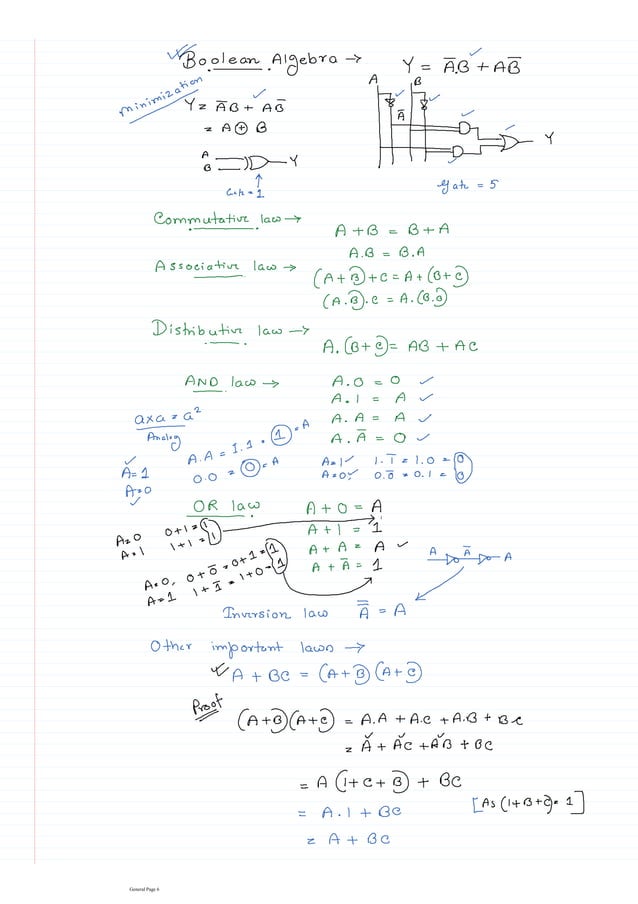 Boolean Algebra →
Y = A̅.B + AB̅
minimization
Y = A̅B + AB̅
= A ⊕ B
A
B
Y
Gate = 1
A B
A̅
Y
Gate = 5
Commutative law →
A + B = B + A
A.B = B.A
Associative law →
(A + B) + C = A + (B + C)
(A.B).C = A.(B.B)
Distributive law →
A.(B + C) = AB + AC
AND law →
A.0 = 0 ✓
A.1 = A ✓
A.A = A ✓
A.A̅ = 0 ✓
a×a = a²
Analog
A=1
A=0
A.A = 1.1 = 1 = A
0.0 = 0 = A
A=1 ✓ 1.1̅ = 1.0 = 0
A=0 ✓ 0.0̅ = 0.1 = 0
OR law
A + 0 = A
A + 1 = 1
A + A = A ✓
A + A̅ = 1
A=0 0+1=1
A=1 1+1=1
A=0, 0+0̅=0+1=1
A=1 1+1̅=1+0=1
A A̅ A
Inversion law A̿ = A
Other important laws →
✓ A + BC = (A+B)(A+C)
Proof
(A+B)(A+C) = A.A + A.C + A.B + BC
= A + AC + AB + BC
= A(1+C+B) + BC
= A.1 + BC [As (1+B+C)=1]
= A + BC
General Page 6